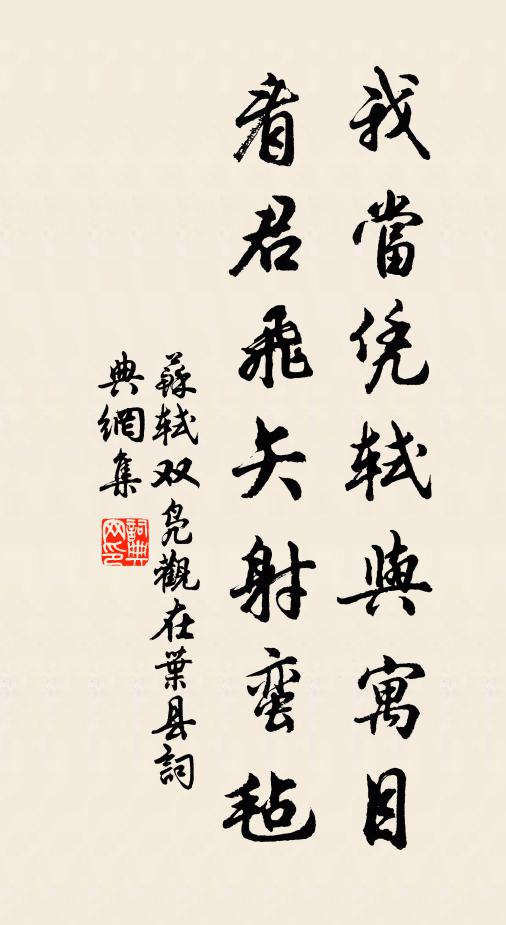 我當凭軾與寓目
看君飛矢射蛮毡
蘇軾双鳧觀在葉县詞
典網集
詞典
网印